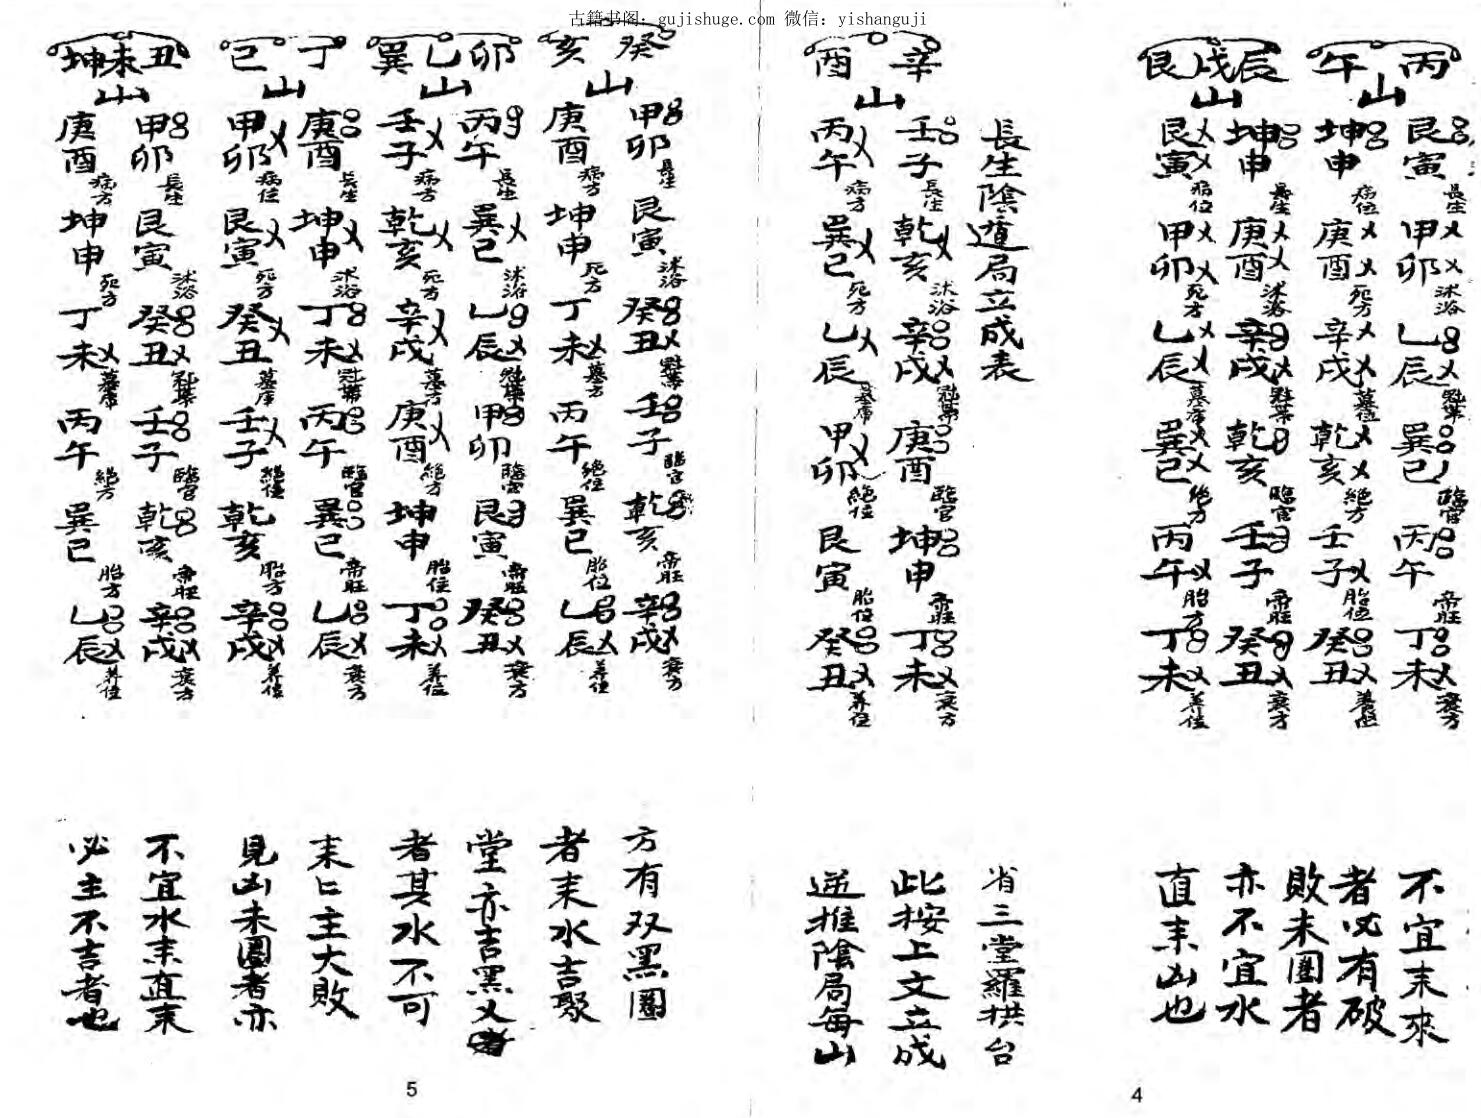 古籍书阁: gujishuge.com 微信: yishanguji
丙午山
艮寅 長生
甲卯 沐浴
乙辰 冠帶
巽巳 臨官
丙午 帝旺
丁未 衰方
坤申 病位
庚酉 死方
辛戌 墓位
乾亥 絕方
壬子 胎位
癸丑 養位
辰戌艮山
坤申 長生
庚酉 沐浴
辛戌 冠帶
乾亥 臨官
壬子 帝旺
癸丑 衰方
艮寅 病位
甲卯 死方
乙辰 墓庫
巽巳 絕方
丙午 胎方
丁未 养位
不宜耒來
者必有破
敗未圈者
亦不宜水
直耒凶也
4
長生陰遁局立成表
辛酉山
壬子 長生
乾亥 沐浴
辛戌 冠帶
庚酉 臨官
坤申 帝旺
丁未 衰方
丙午 病方
巽巳 死方
乙辰 墓庫
甲卯 絕位
艮寅 胎位
癸丑 养位
省三堂羅拱台
此按上文立成
逆推陰局每山
癸亥山
甲卯 長生
艮寅 沐浴
癸丑 冠帶
壬子 臨官
乾亥 帝旺
辛戌 衰方
庚酉 病方
坤申 死方
丁未 墓方
丙午 絕位
巽巳 胎位
乙辰 养位
卯乙巽山
丙午 長生
巽巳 沐浴
乙辰 冠帶
甲卯 臨官
艮寅 帝旺
癸丑 衰方
壬子 病方
乾亥 死方
辛戌 墓方
庚酉 絕方
坤申 胎位
丁未 养位
丁己山
庚酉 長生
坤申 沐浴
丁未 冠帶
丙午 臨官
巽巳 帝旺
乙辰 衰方
甲卯 病位
艮寅 死方
癸丑 墓庫
壬子 絕位
乾亥 胎方
辛戌 养位
丑未坤山
甲卯 長生
艮寅 沐浴
癸丑 冠帶
壬子 臨官
乾亥 帝旺
辛戌 衰方
庚酉 病方
坤申 死方
丁未 墓庫
丙午 絕方
巽巳 胎方
乙辰 养位
方有双黑圈
者耒水吉聚
堂亦吉黑乂
者其水不可
耒匕主大敗
見凶未圈者亦
不宜水耒直耒
必主不吉者也
5